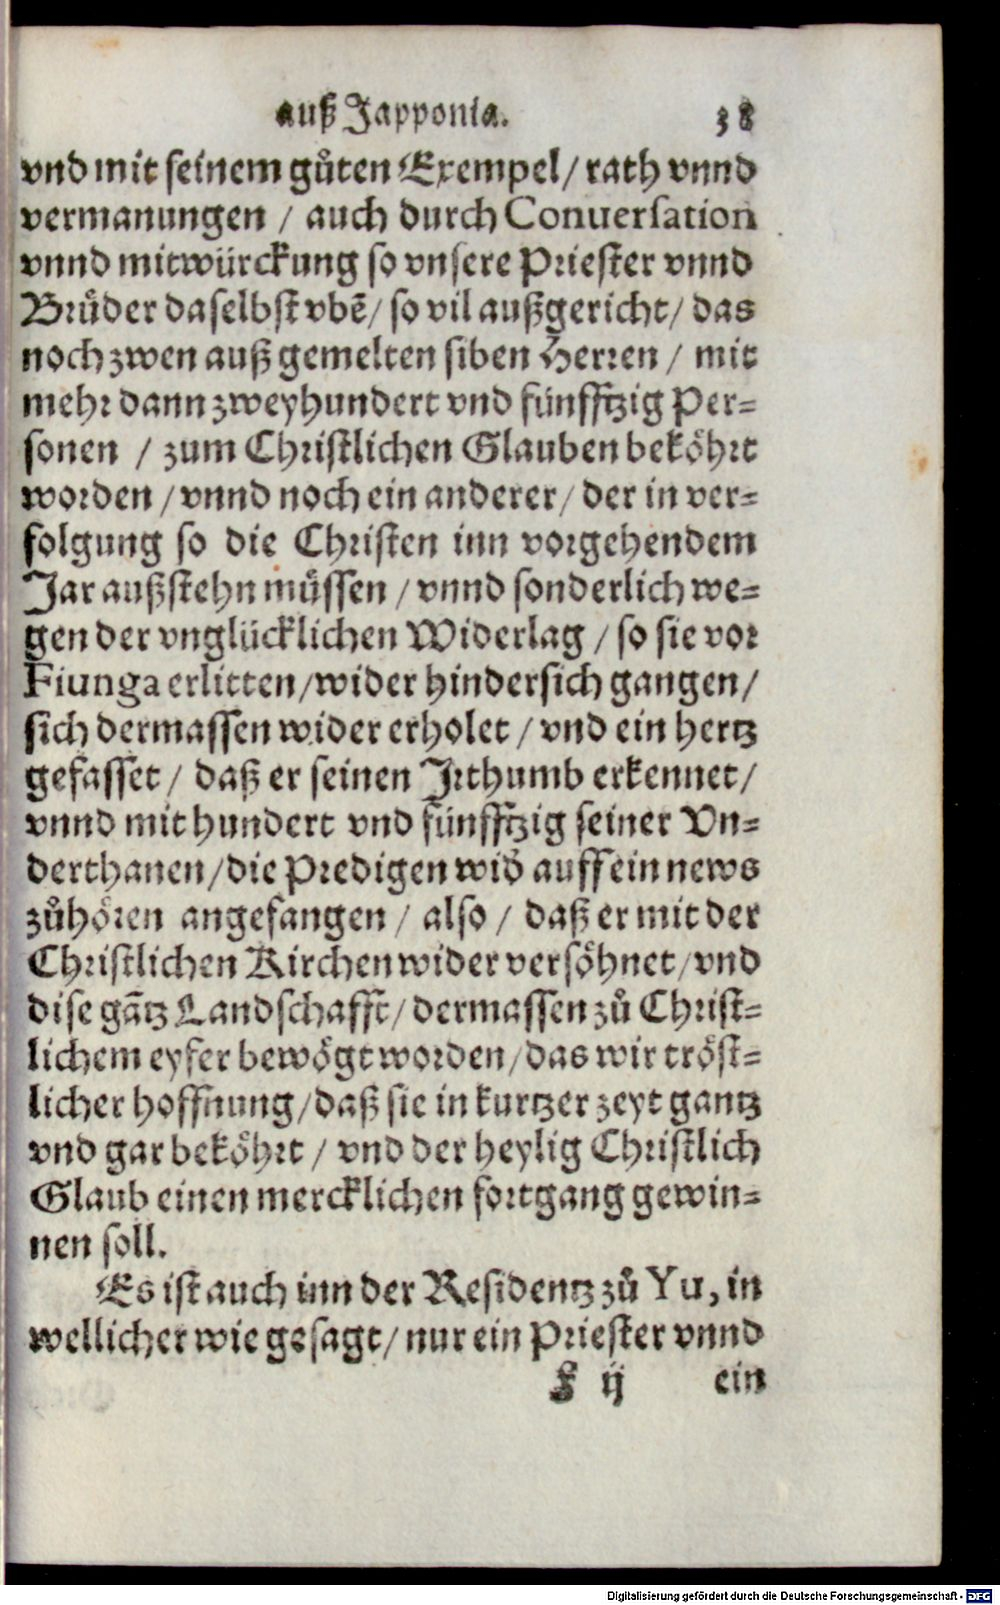 auß Japponia. 38
vnd mit seinem gůten Exempel/ rath vnnd
vermanungen / auch durch Conuersation
vnnd mitwürckung so vnsere Priester vnnd
Brůder daselbst vbē/ so vil außgericht/ das
noch zwen auß gemelten siben Herren / mit
mehr dann zweyhundert vnd fünfftzig Per=
sonen / zum Christlichen Glauben beköhrt
worden / vnnd noch ein anderer/ der in ver=
folgung so die Christen inn vorgehendem
Jar außstehn müssen / vnnd sonderlich we=
gen der vnglücklichen Widerlag / so sie vor
Fiunga erlitten/wider hindersich gangen/
sich dermassen wider erholet / vnd ein hertz
gefasset / daß er seinen Irthumb erkennet/
vnnd mit hundert vnd fünfftzig seiner Vn=
derthanen/die Predigen wid̄ auff ein news
zůhören angefangen / also / daß er mit der
Christlichen Kirchen wider versöhnet/vnd
dise gātz Landschafft/ dermassen zů Christ=
lichem eyfer bewögt worden/das wir tröst=
licher hoffnung/daß sie in kurtzer zeyt gantz
vnd gar beköhrt / vnd der heylig Christlich
Glaub einen mercklichen fortgang gewin=
nen soll.
Es ist auch inn der Residentz zů Yu, in
wellicher wie gesagt/ nur ein Priester vnnd
ij ein
Digitalisierung gefördert durch die Deutsche Forschungsgemeinschaft - DFG